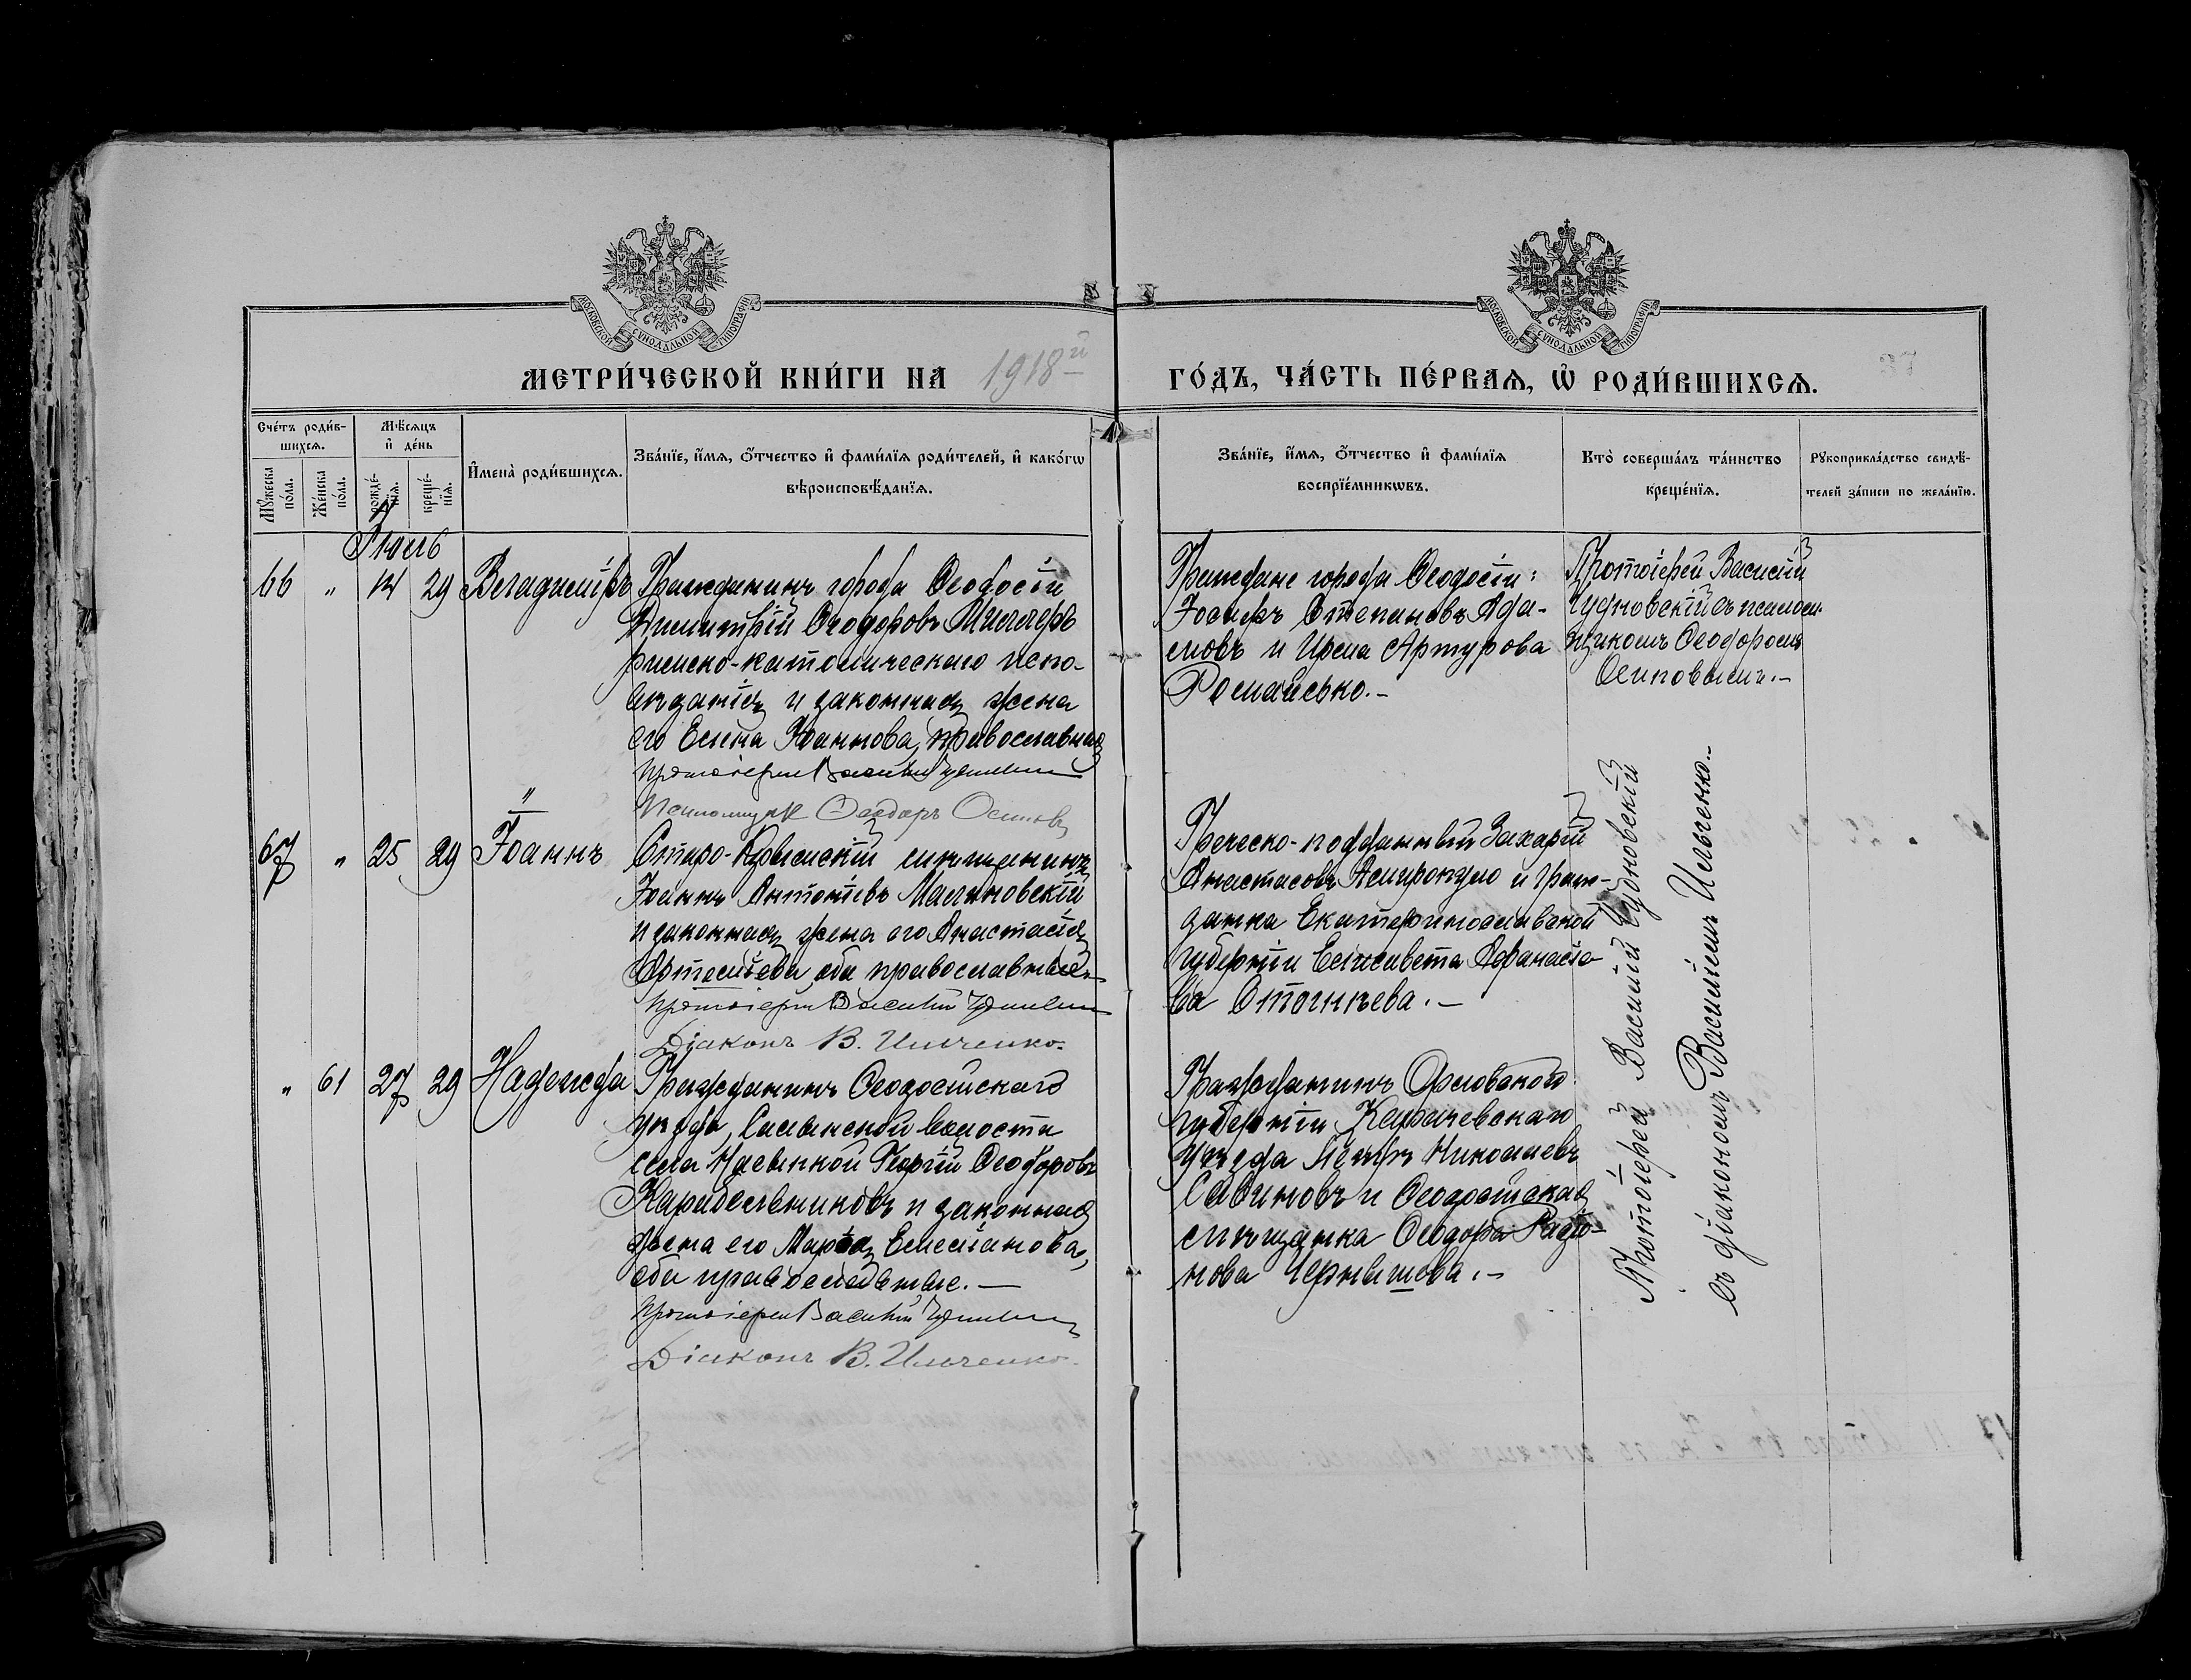 МОСКОВСКОЙ СѴНОДАЛЬНОЙ ТИПОГРАФІИ
МОСКОВСКОЙ СѴНОДАЛЬНОЙ ТИПОГРАФІИ
МЕТРИ́ЧЕСКОЙ КНИ́ГИ НА 1918й
ГО́ДЪ, ЧА́СТЬ ПЕ́РВАѦ, Ѡ҆ РОДИ́ВШИХСѦ.
Сче́тъ роди́в-
шихсѧ.
Мꙋ́жеска по́ла.
Же́нска по́ла.
Мѣ́сѧцъ
и҆ де́нь
рожде́нїѧ.
креще́нїѧ.
И҆мена̀ роди́вшихсѧ.
Зва́нїе, и҆́мѧ, ѻ҆́тчество и҆ фами́лїѧ роди́телей, и҆ како́гѡ
вѣроисповѣ́данїѧ.
Зва́нїе, и҆́мѧ, ѻ҆́тчество и҆ фами́лїѧ
воспрїе́мникѡвъ.
Кто̀ соверша́лъ та́инство
креще́нїѧ.
Рꙋкоприкла́дство свидѣ́-
телей за́писи по жела́нїю.
Іюль
66 " 14 29 Владиміръ
Гражданинъ города Ѳеодосіи
Димитрій Ѳеодоровъ Миллеръ
римско-католическаго испо-
вѣданія и законная жена
его Елена Іоаннова, православная
Протоіерей Василій
Псаломщик Ѳеодоръ Осиповъ
Граждане города Ѳеодосіи:
Іосифъ Степановъ Ада-
мовъ и Ирма Артурова
Ромайсько.-
Протоіерей Василій
Чудновскій съ псалом-
щикомъ Ѳеодоромъ
Осиповымъ.-
"
67 " 25 29 Іоаннъ
Старо-Крымскій мѣщанинъ
Іоаннъ Антоніевъ Малиновскій
и законная жена его Анастасія
оба православные.
Протоіерей Василій
Діаконъ В. Ильченко.
Греческо-подданный Захарій
Анастасовъ и граж-
данка Екатеринославской
губерніи Елисавета Аѳанасіе-
ва
" 61 27 29 Надежда
Гражданинъ Ѳеодосійскаго
уѣзда, Салынской волости
села Георгій Ѳеодоровъ
Карабельниковъ и законная
жена его Марѳа Емеліанова,
оба православные.-
Протоіерей Василій
Діаконъ В. Ильченко.
Гражданинъ Орловской
губерніи Карачевскаго
уѣзда Петръ Николаевъ
Савиновъ и Ѳеодосійская
мѣщанка Ѳеодора Радіо-
нова Чернышова.-
Протоіерей Василій Чудновскій
съ діакономъ Василіемъ Ильченко.-